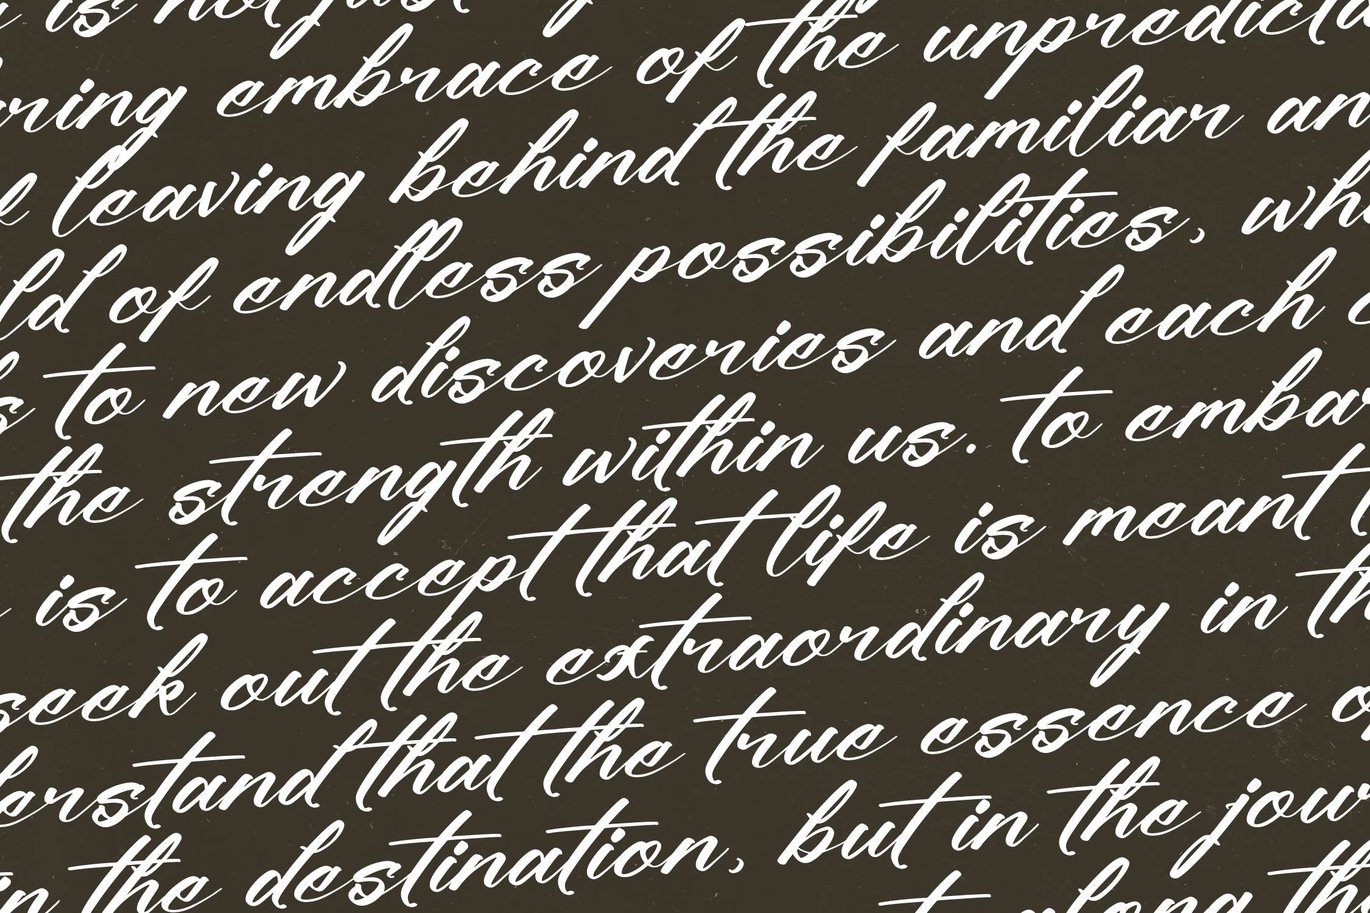 is not just
embrace of the
leaving behind the familiar
of endless possibilities,
to new discoveries and each
the strength within us. to
is to accept that life is meant
seek out the extraordinary in
that the true essence
in the destination, but in the
along